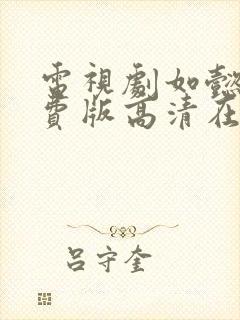 電視劇如懿
費版高清在
吕守奎